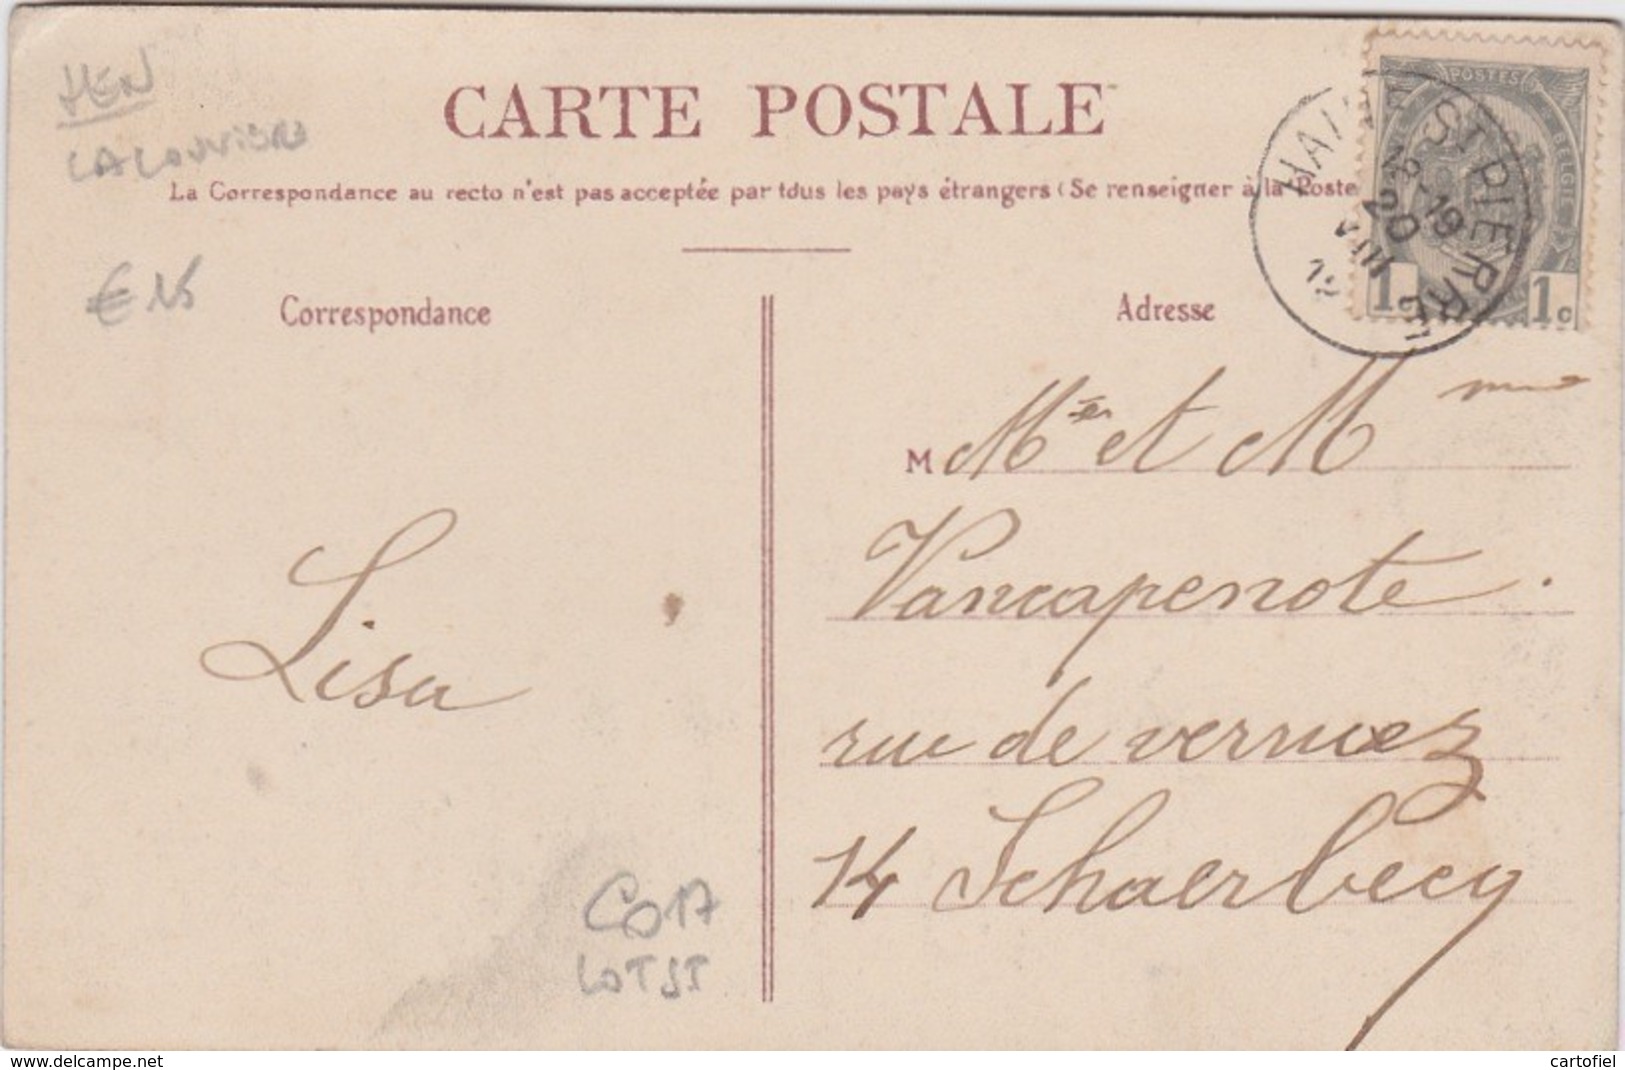 HEN
LA LOUVIERE
CARTE POSTALE
La Correspondance au recto n'est pas acceptée par tous les pays étrangers (Se renseigner à la Poste
POSTES
BELGIQUE
1c 1c
HAINE-ST-PIERRE
18-19
20
VIII
12
€ 15
Correspondance
Adresse
M Mr et Mme
Vancapenote.
rue de
14 Schaerbecq
Lisa
CD17
LOT
delcampe.net
cartofiel